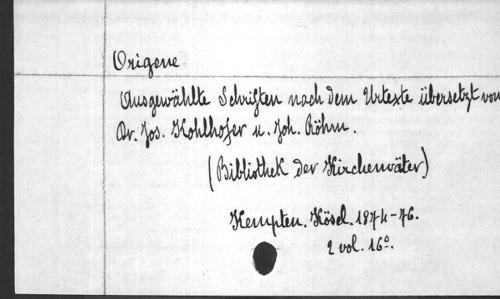 Origene
Ausgewählte Schriften nach dem Urtexte übersetzt von
Dr. Jos. Kohlhofer u. Joh. Röhm.
(Bibliothek der Kirchenväter)
Kempten. Kösel. 1874-76.
2 vol. 16°.